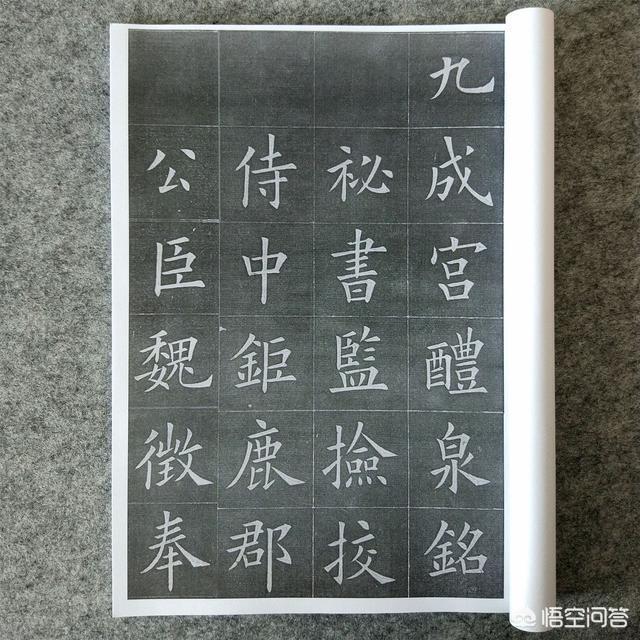 九成宫醴泉銘
祕書監撿挍
侍中鉅鹿郡
公臣魏徵奉
悟空问答